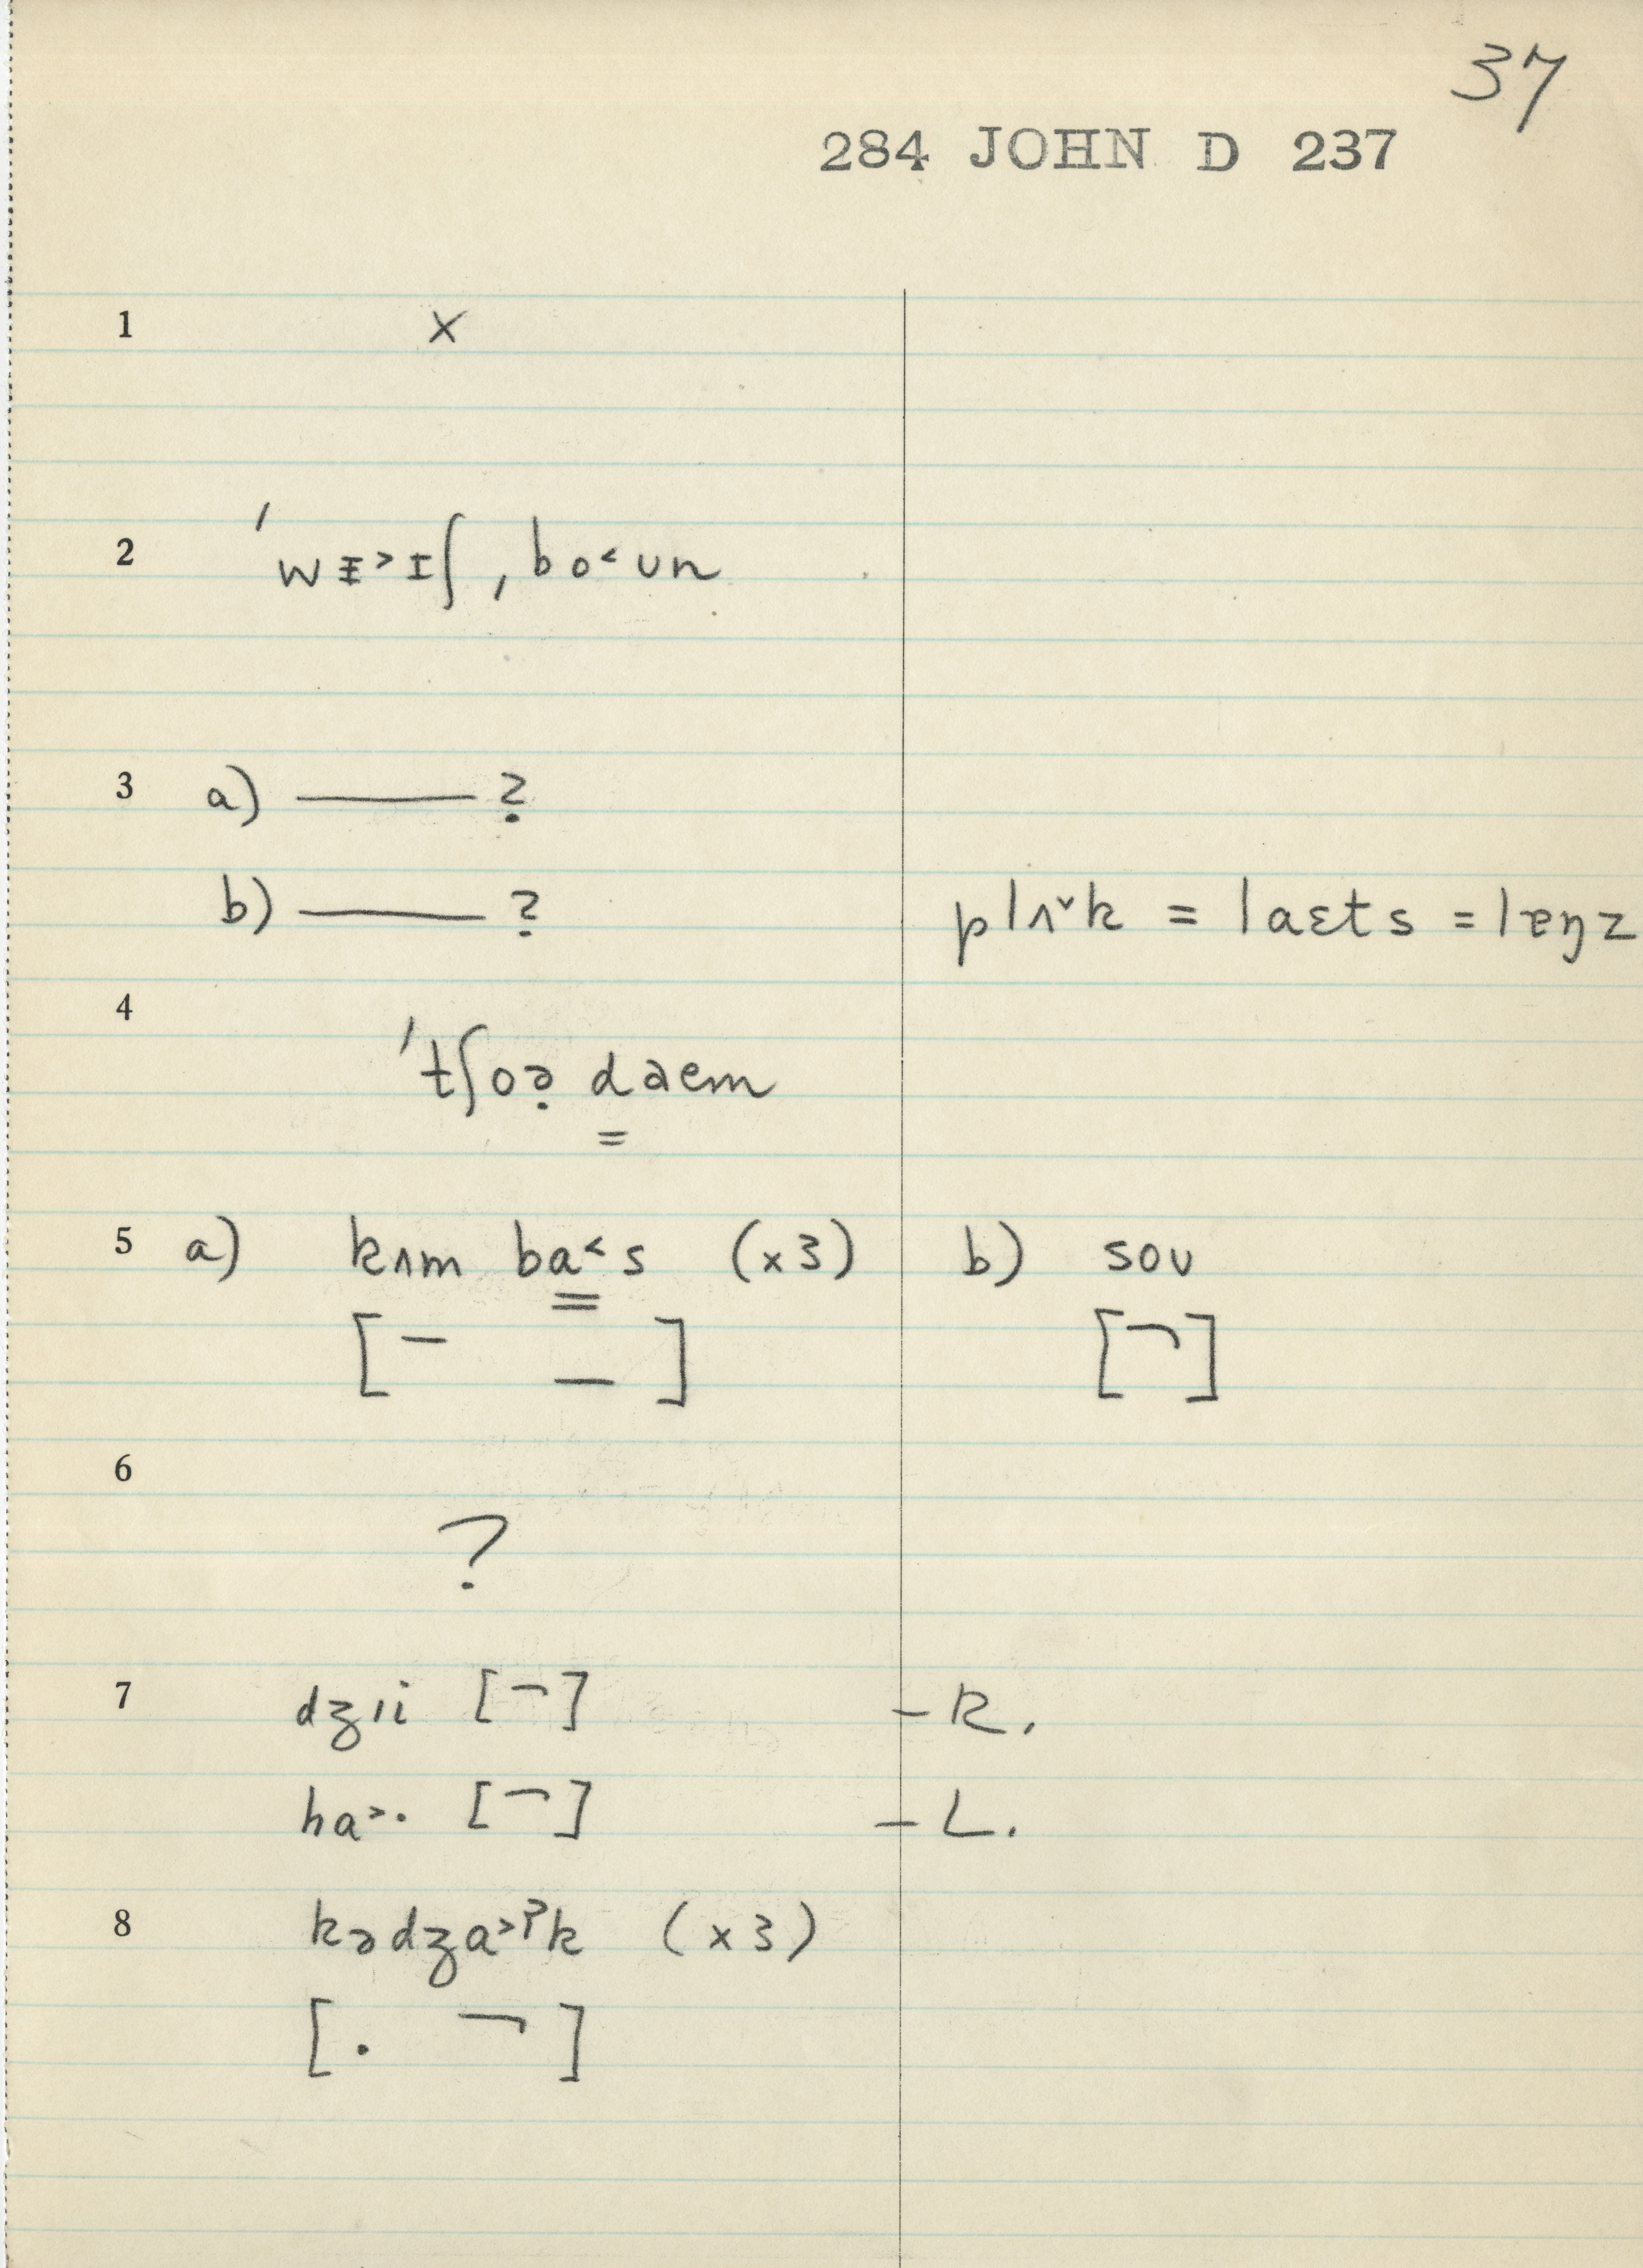 37
284 JOHN D 237
1 x
2 ˈwᵻ˃ɪʃ ˌbo˂ʊn
3 a) ——— ?
b) ——— ? plʌ˅k = laɛts = lɐŋz
4 ˈtʃoə̣ d̳aem
5 a) kʌm ba̳˂s (x3) b) soʊ
[¯ _] [¬]
6
?
7 dʒıi [¬] – R.
ha˃· [¬] – L.
8 kədʒa˃ˀk (x3)
[. ¬]